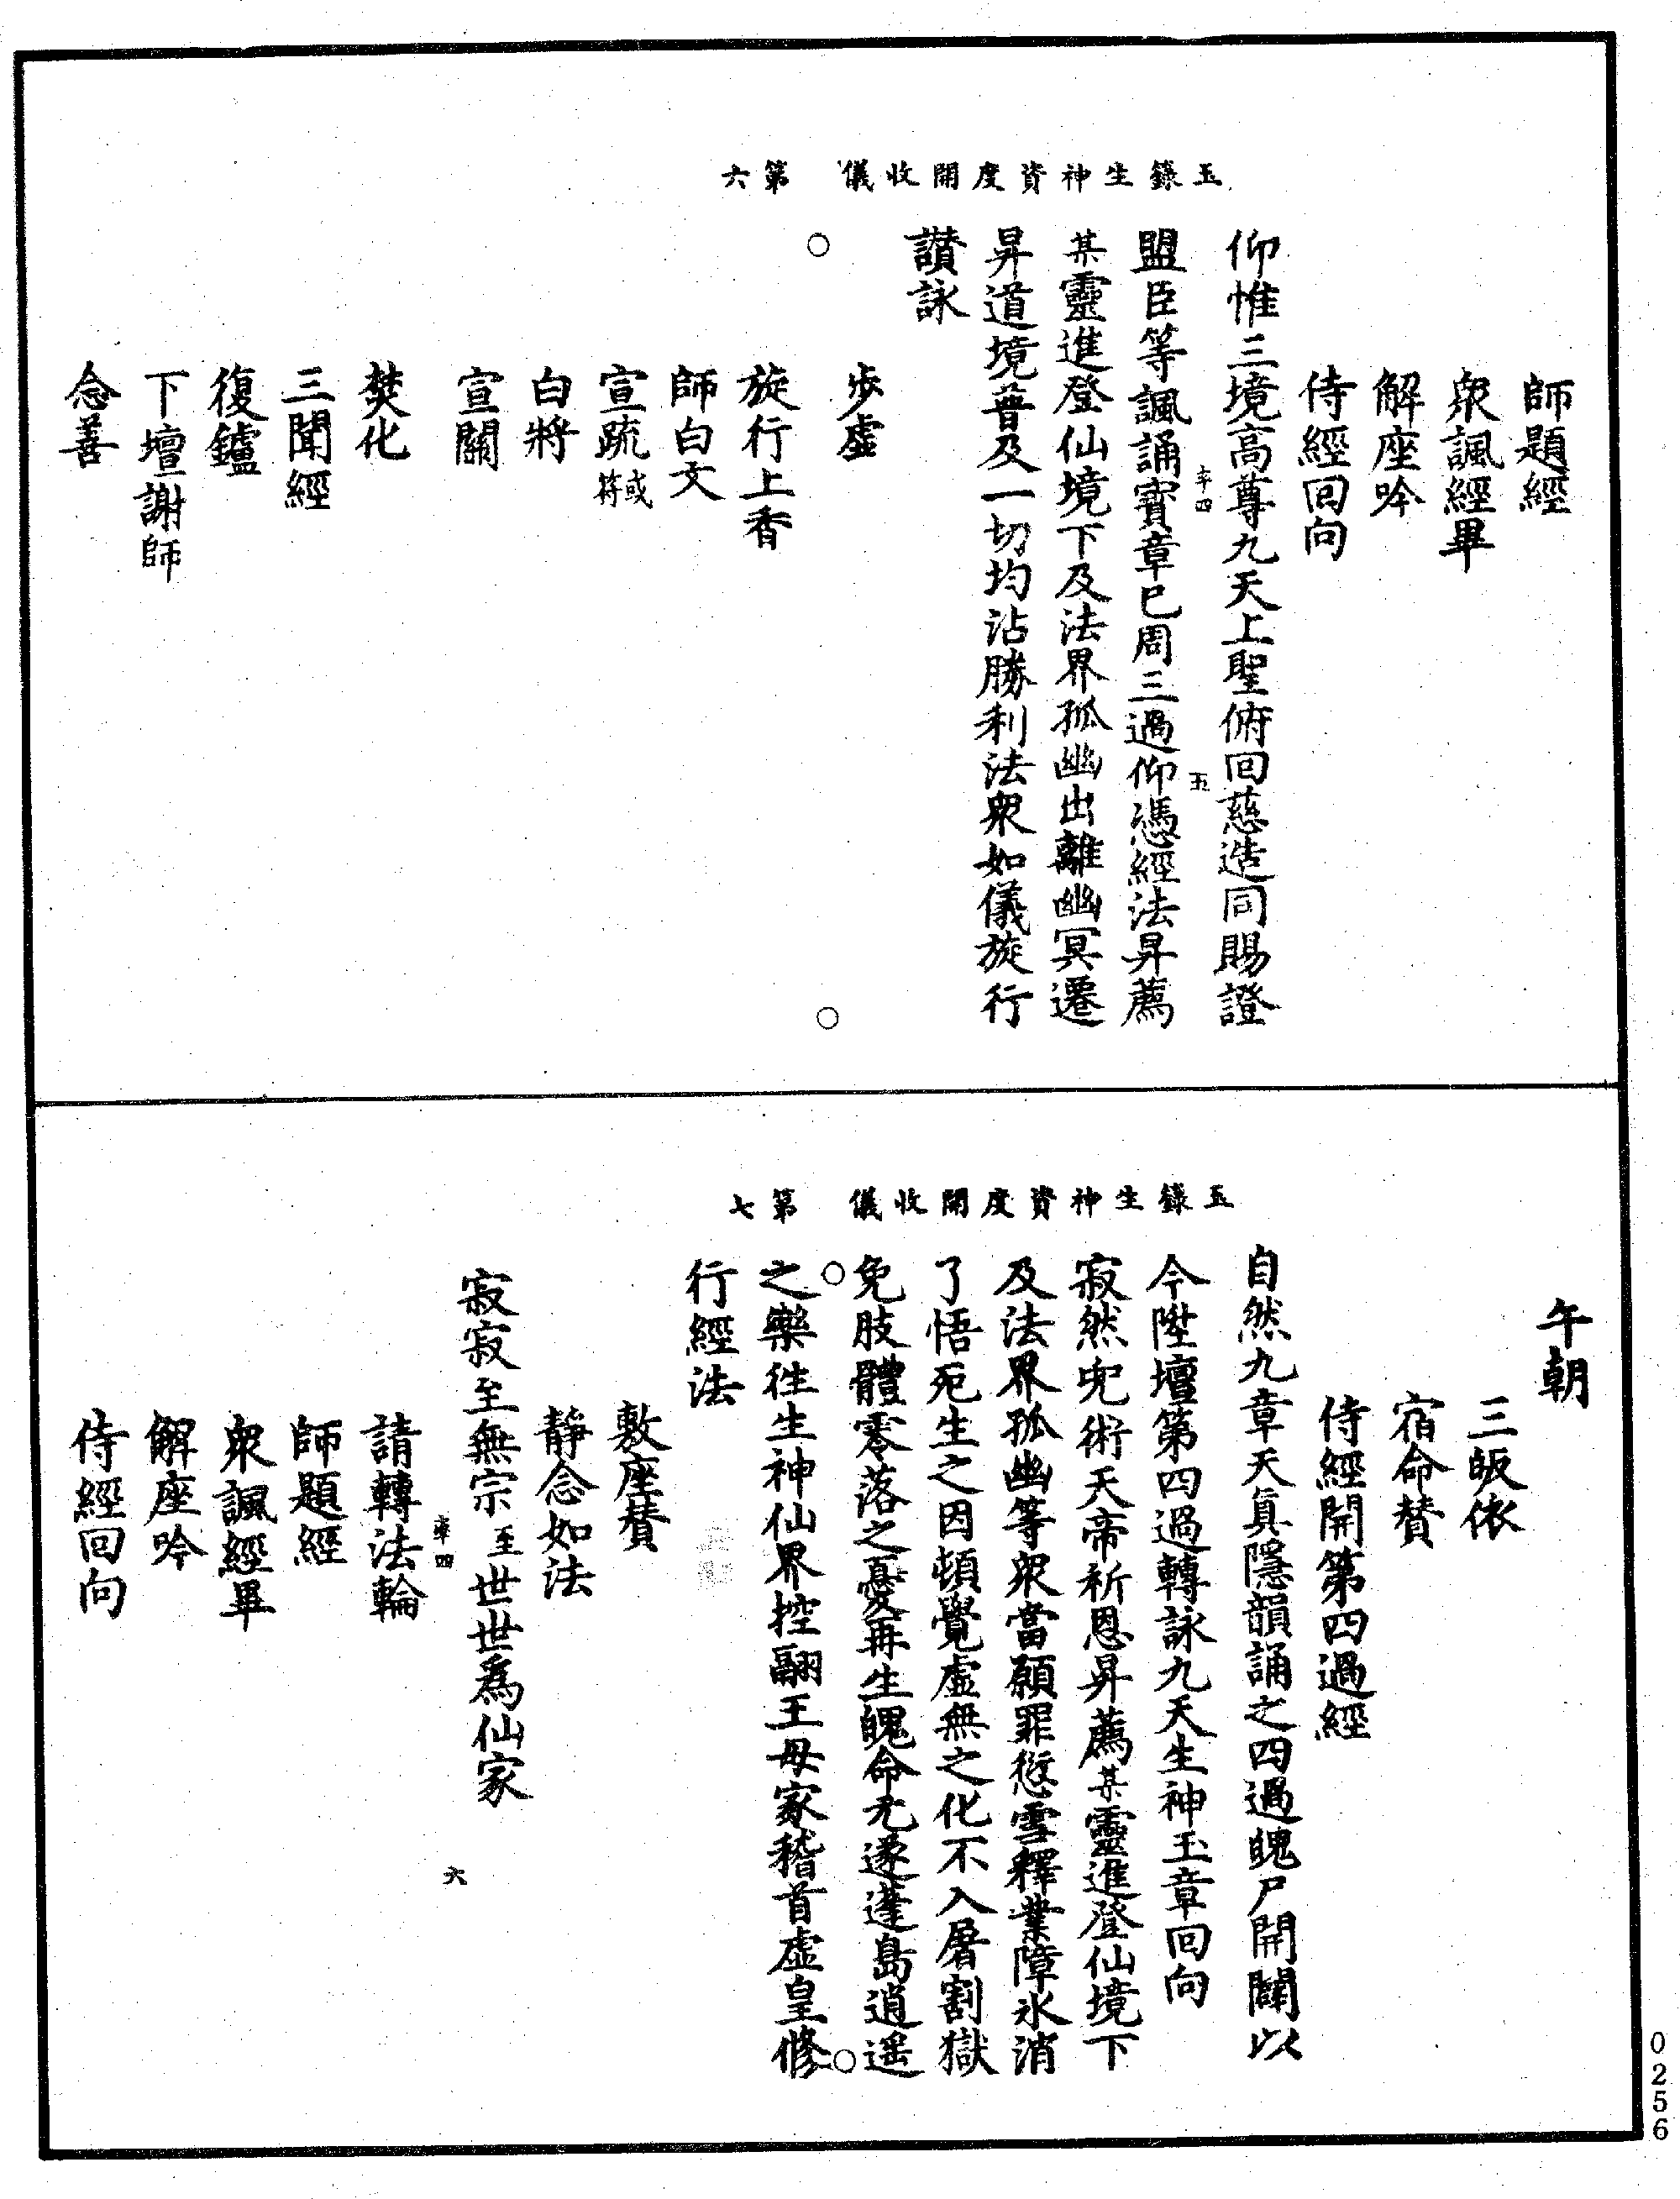 玉籙生神資度開收儀 第六
師題經
衆諷經畢
解座吟
侍經回向
仰惟三境高尊九天上聖俯回慈造同賜證
盟臣等諷誦寶章已周三過仰憑經法昇薦
某靈進登仙境下及法界孤幽出離幽冥遷
昇道境普及一切均沾勝利法衆如儀旋行
讃詠
步虛
旋行上香
師白文
宣疏或符
白將
宣關
焚化
三聞經
復鑪
下壇謝師
念善
五
玉籙生神資度開收儀 第七
午朝
三皈依
宿命賛
侍經開第四過經
自然九章天真隱韻誦之四過魄尸開闢以
今陞壇第四過轉詠九天生神玉章回向
寂然兜術天帝祈恩昇薦某靈進登仙境下
及法界孤幽等衆當願罪愆雪釋業障氷消
了悟死生之因頓覺虛無之化不入屠割獄
免肢體零落之憂再生魄命元遂蓬島逍遥
之樂往生神仙界控翮王母家稽首虛皇修
行經法
敷座賛
靜念如法
寂寂至無宗至世世爲仙家
請轉法輪
師題經
衆諷經畢
解座吟
侍經回向
六
0256